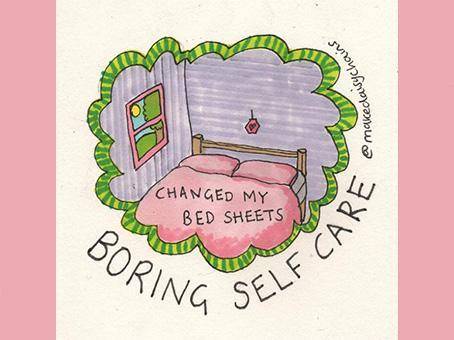 CHANGED MY
BED SHEETS
BORING SELF CARE
@makedaisychains